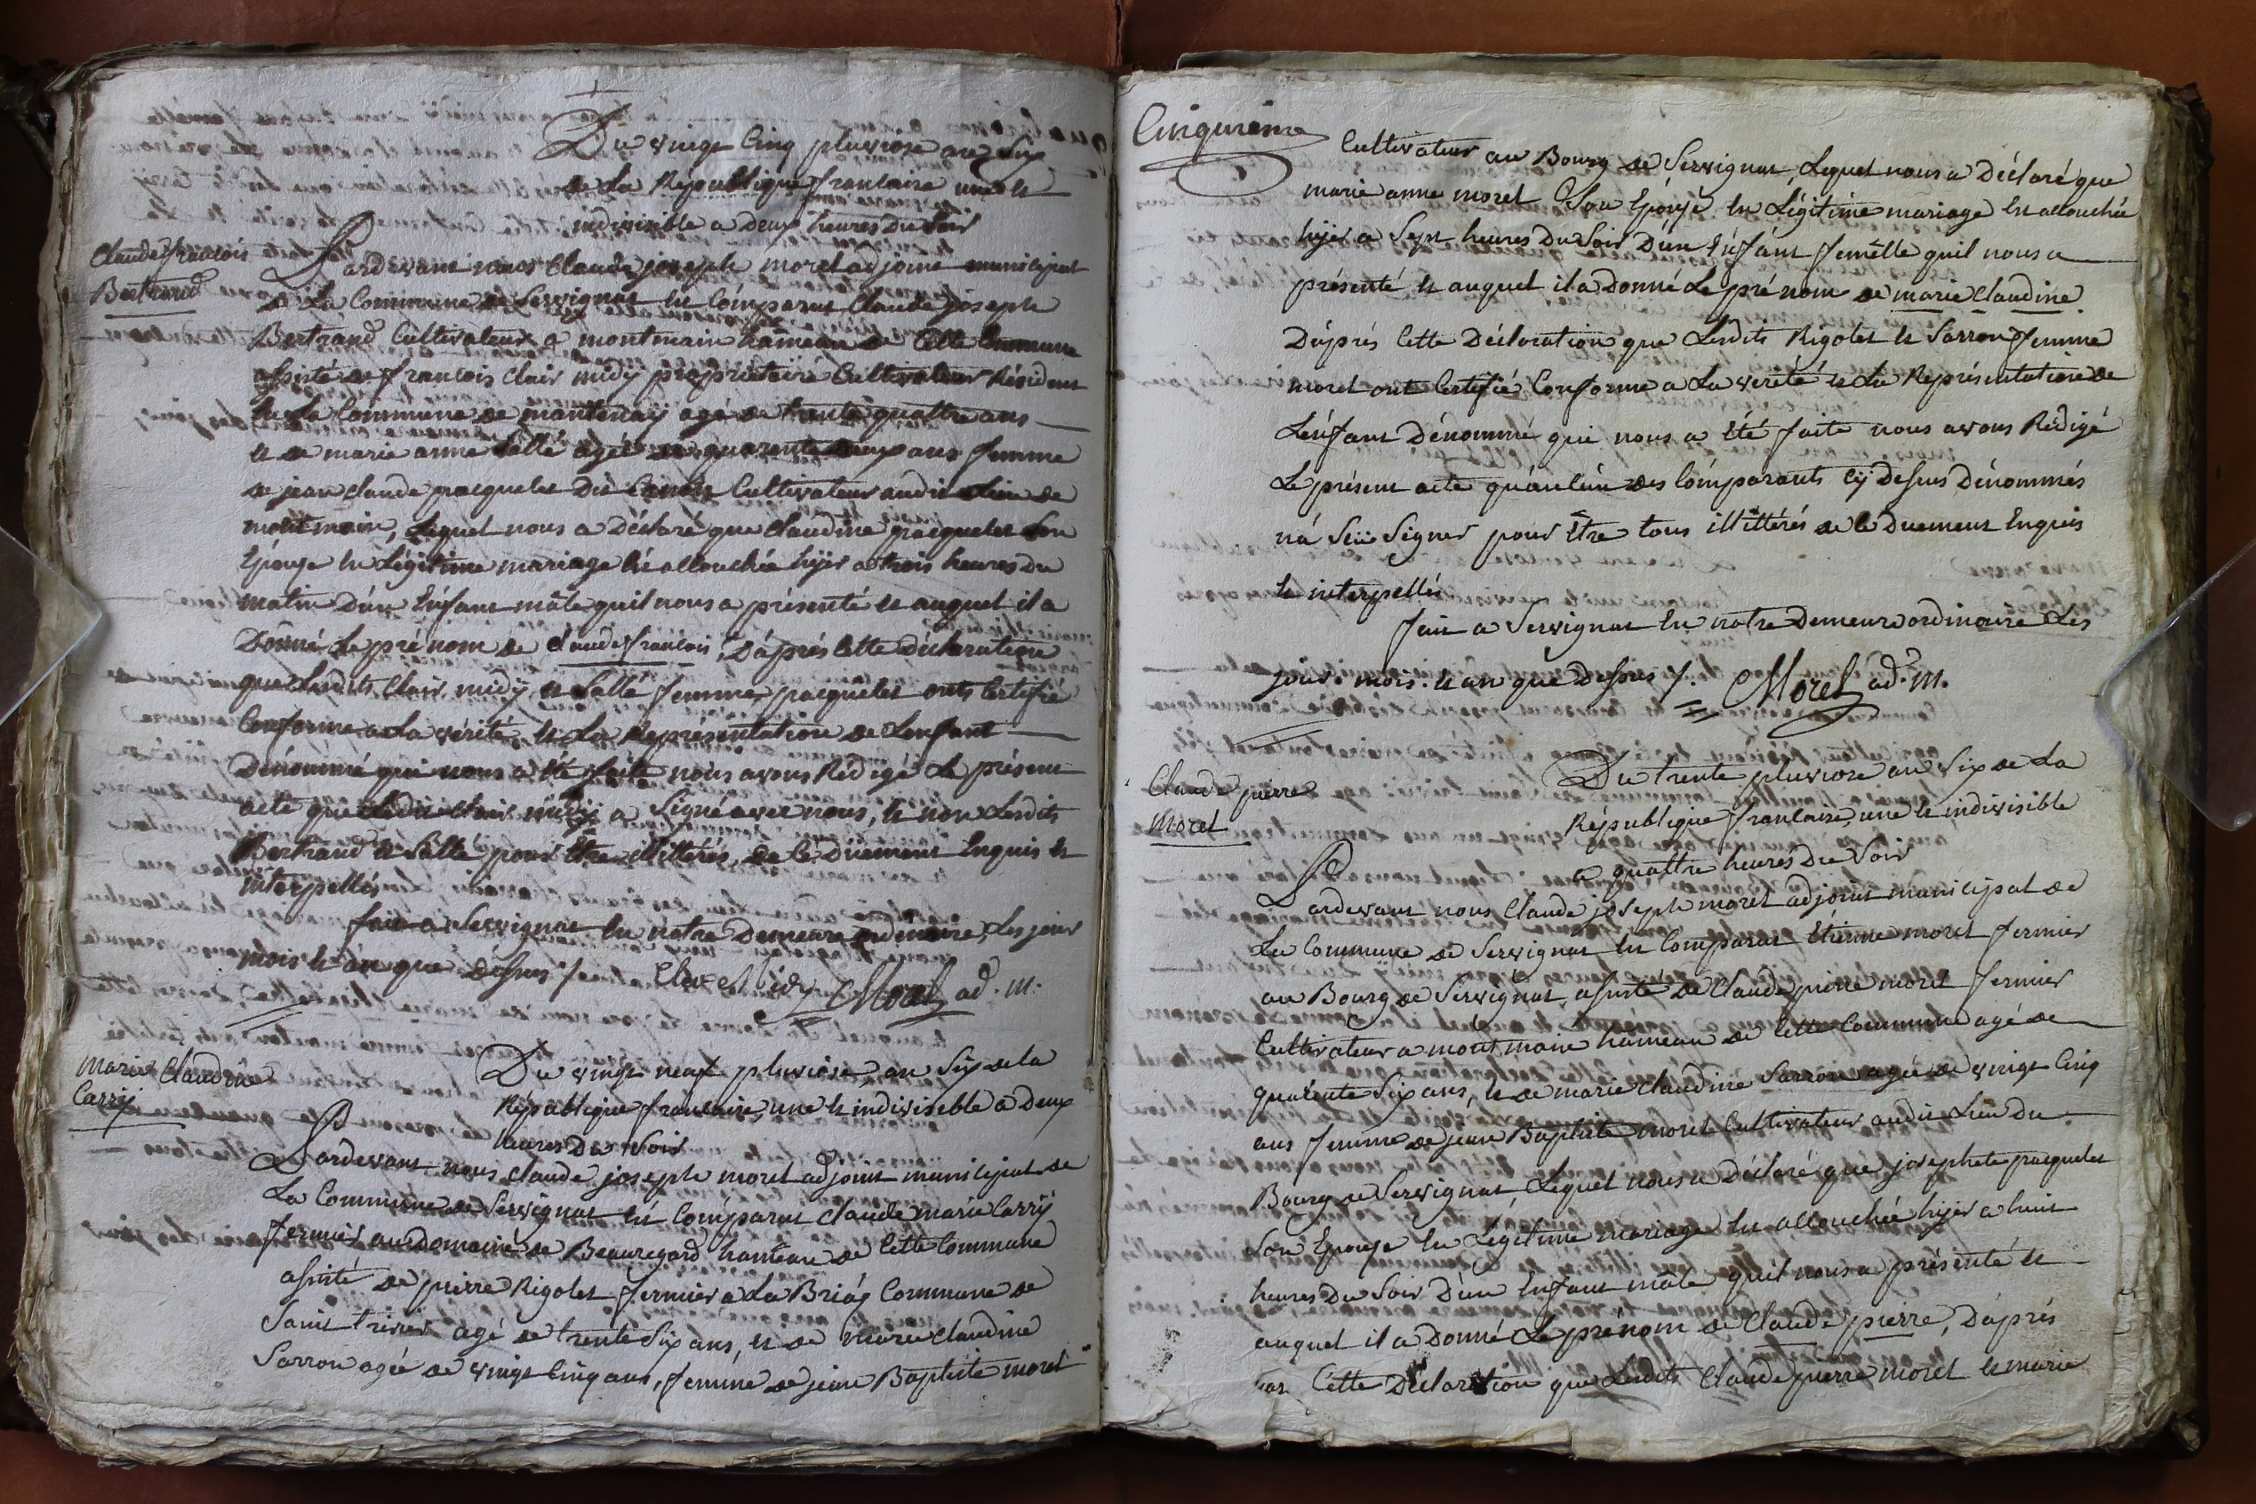 Du vingt Cinq pluviose an Six
de La République francaise une et
indivisible a Deux heures Du Soir
Claude francois
Bertrand
Pardevant nous Claude joseph moret adjoint municipal
de La Commune de Servignat Est Comparut Claude joseph
Bertrand Cultivateur a montmain hameau de Cette Commune
assisté de francois Clair midy propriétaire Cultivateur Résident
En La Commune de mantenay agé de trente quattre ans
et de marie anne Sallé agée de quarente deux ans femme
de jean claude pacquelet Dit Cultivateur audit Lieu de
montmain, Lequel nous a Déclaré que Claudine pacquelet Son
Epouse En Légitime mariage Est accouchée hyer a trois heures Du
matin D'un Enfant mâle quil nous a présenté et auquel il a
Donné Le pré nom de claude francois, D'áprés Cette Déclaration
que Lesdits Clair midy et Sallé femme pacquelet onts Certifié
Conforme a La vérité et La Représentation de Lenfant
Dénommé qui nous a été faite nous avons Rédigé Le présent
acte que Ledit Clair midy a Signé avec nous, et non Lesdits
Bertrand et Sallé pour Etre illittérés, de Ce Duement Enquis et
interpellés
fait a Servignat En nôtre Demeure ordinaire, Les jour
mois et an que Dessus /. Clair Midy Moret ad. m.
Marie Claudine
Carry
Du vingt neuf pluviose, an Six de la
République francaise une et indivisible a Deux
heures Du Soir
Pardevant nous Claude joseph moret adjoint municipal de
La Commune de Servignat Est Comparut Claude marie Carry
fermier au Domaine de Beauregard hameau de Cette Commune
assisté de pierre Rigolet fermier a La Commune de
Saint trivier agé de trente Six ans, et de marie claudine
Sarron agée de vingt Cinq ans, femme de jean Baptiste moret
Cinquième
Cultivateur au Bourg de Servignat, Lequel nous a Déclaré que
marie anne moret Son Epouse En Légitime mariage Est accouchée
hyer a Sept heures Du Soir D'un Enfant femelle quil nous a
présenté et auquel il a Donné Le pré nom de marie Claudine
D'áprés Cette Déclaration que Lesdits Rigolet et Sarron femme
moret ont Certifié Conforme a La verité et La Représentation de
L'enfant Dénommé qui nous a été faite nous avons Rédigé
Le présent acte qu'áulcun des Comparants cy Dessus Dénommés
n'á Sçu Signer pour être tous illittérés de Ce Duement Enquis
et interpellés
fait a Servignat En notre Demeure ordinaire Les
jour. mois. et an que Dessus /. Moret ad. m.
Claude pierre
Moret
Du trente pluviose an Six de La
République francaise, une et indivisible
a quattre heures Du Soir
Pardevant nous Claude joseph moret adjoint municipal de
La Commune de Servignat Est Comparut Etienne moret fermier
au Bourg de Servignat assisté de Claude pierre moret fermier
Cultivateur a montmain hameau de Cette Commune agé de
quarente Six ans, et de marie claudine Sarron agée de vingt Cinq
ans femme de jean Baptiste moret Cultivateur audit Lieu Du
Bourg de Servignat, Lequel nous a Déclaré que josephete pacquelet
Son Epouse En Légitime mariage Est accouchée hyer a huit
heures Du Soir D'un Enfant mâle quil nous a présenté et
auquel il a Donné Le prénom de Claude pierre, D'áprés
Cette Déclaration que Lesdits Claude pierre moret et marie